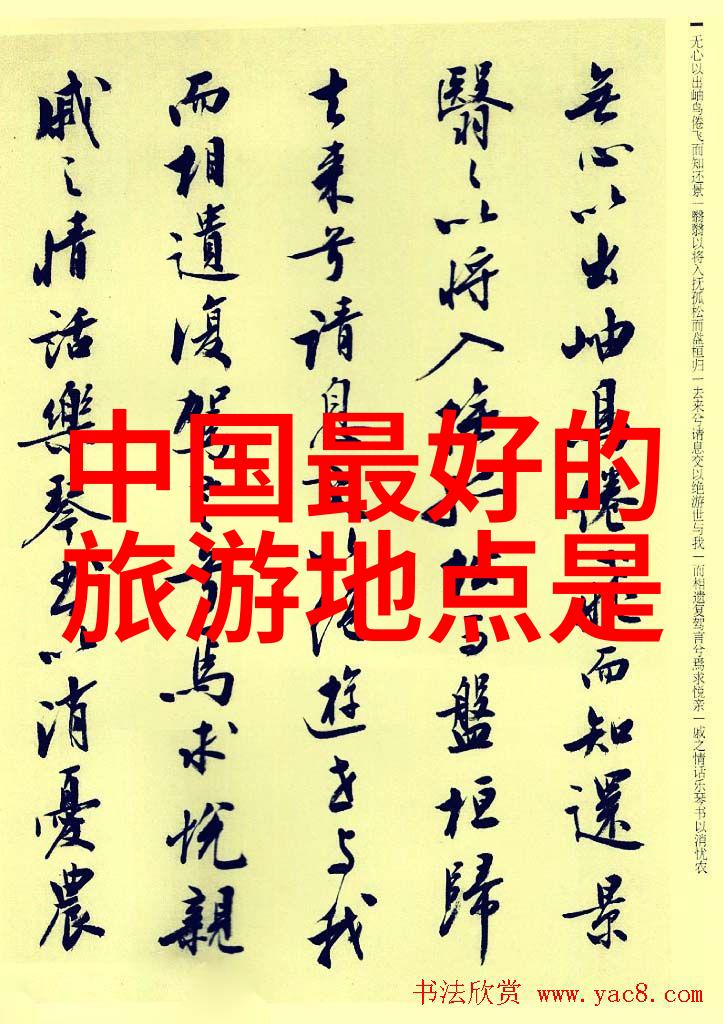 中国最好的
旅游地点是
無心以出岫鳥倦飛而知還景
翳々以將入撫孤松而盤桓歸
去来兮請息交以絶遊世与我
而相遺復駕言兮焉求悅親
戚之情話樂琴書以消憂農
无心以出岫鸟倦飞而知还景一翳翳以将入抚孤松而盘桓归一去来兮请息交以绝游世与我一而相遗复驾言兮焉求悦亲一戚之情话乐琴书以消忧农
书法欣赏 www.yac8.com